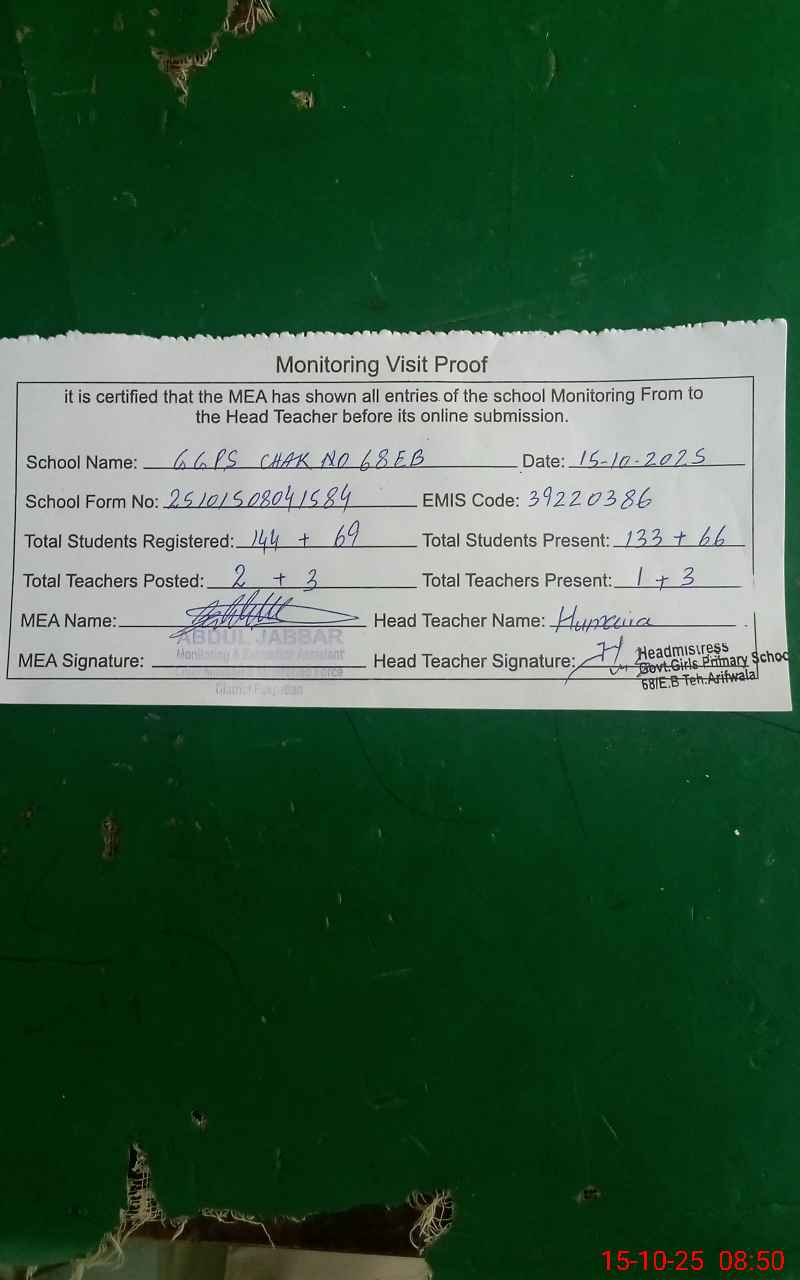 Monitoring Visit Proof
it is certified that the MEA has shown all entries of the school Monitoring From to
the Head Teacher before its online submission.
School Name: GGPS CHAK NO 68EB Date: 15-10-2025
School Form No: 25101508041584 EMIS Code: 39220386
Total Students Registered: 144 + 69 Total Students Present: 133 + 66
Total Teachers Posted: 2 + 3 Total Teachers Present: 1 + 3
MEA Name: Head Teacher Name: Humaira
ABDUL JABBAR
Monitoring & Evaluation Assistant
MEA Signature: Head Teacher Signature:
Headmistress
Govt.Girls Primary Schoo
68/E.B Teh.Arifwala
15-10-25 08:50